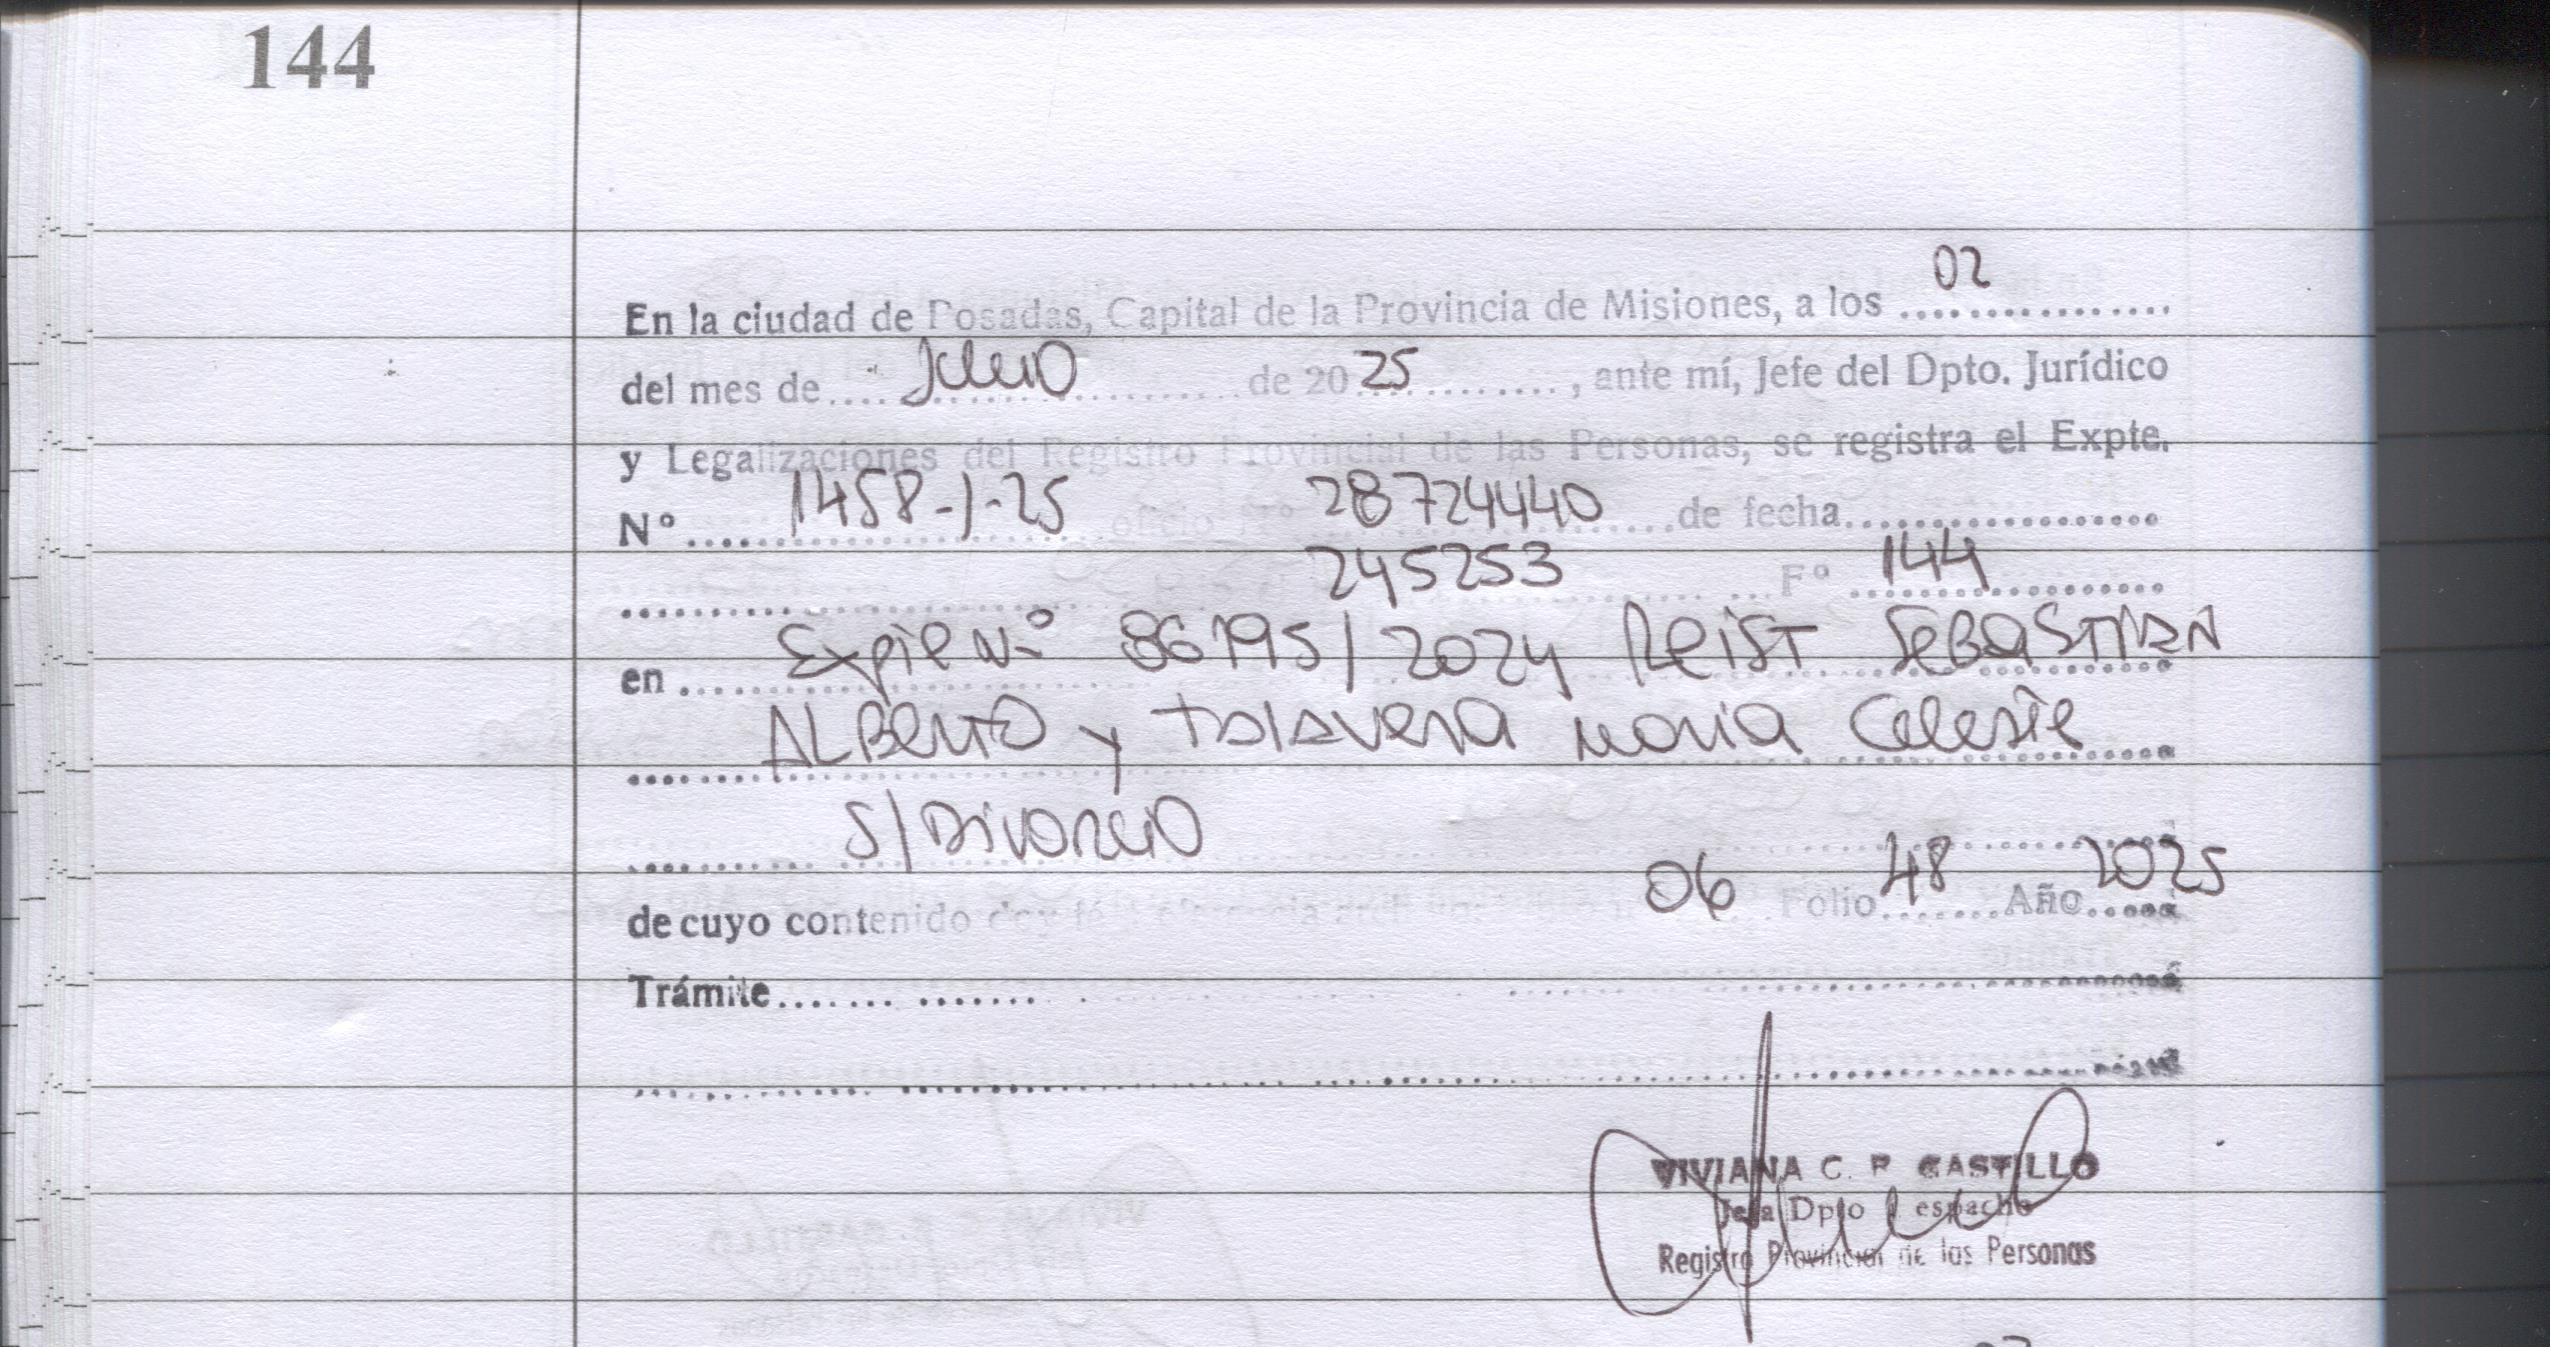 144
02
En la ciudad de Posadas, Capital de la Provincia de Misiones, a los ................
del mes de.... Julio ........ de 20 25 ........., ante mí, Jefe del Dpto. Jurídico
y Legalizaciones del Registro Provincial de las Personas, se registra el Expte.
Nº .... 1458-1-25 oficio Nº 28724440 ......de fecha...................
245253 ...Fº 144
en ... Expte Nº 86195/2024 Reist SEBASTIAN
ALBERTO y Talavera Maria Celeste
S/Divorcio
de cuyo contenido doy fe 06 Folio 48 Año 2025
Trámite....... .......
VIVIANA C. CASTILLO
Jefa Dpto espacho
Registro Provincial de las Personas